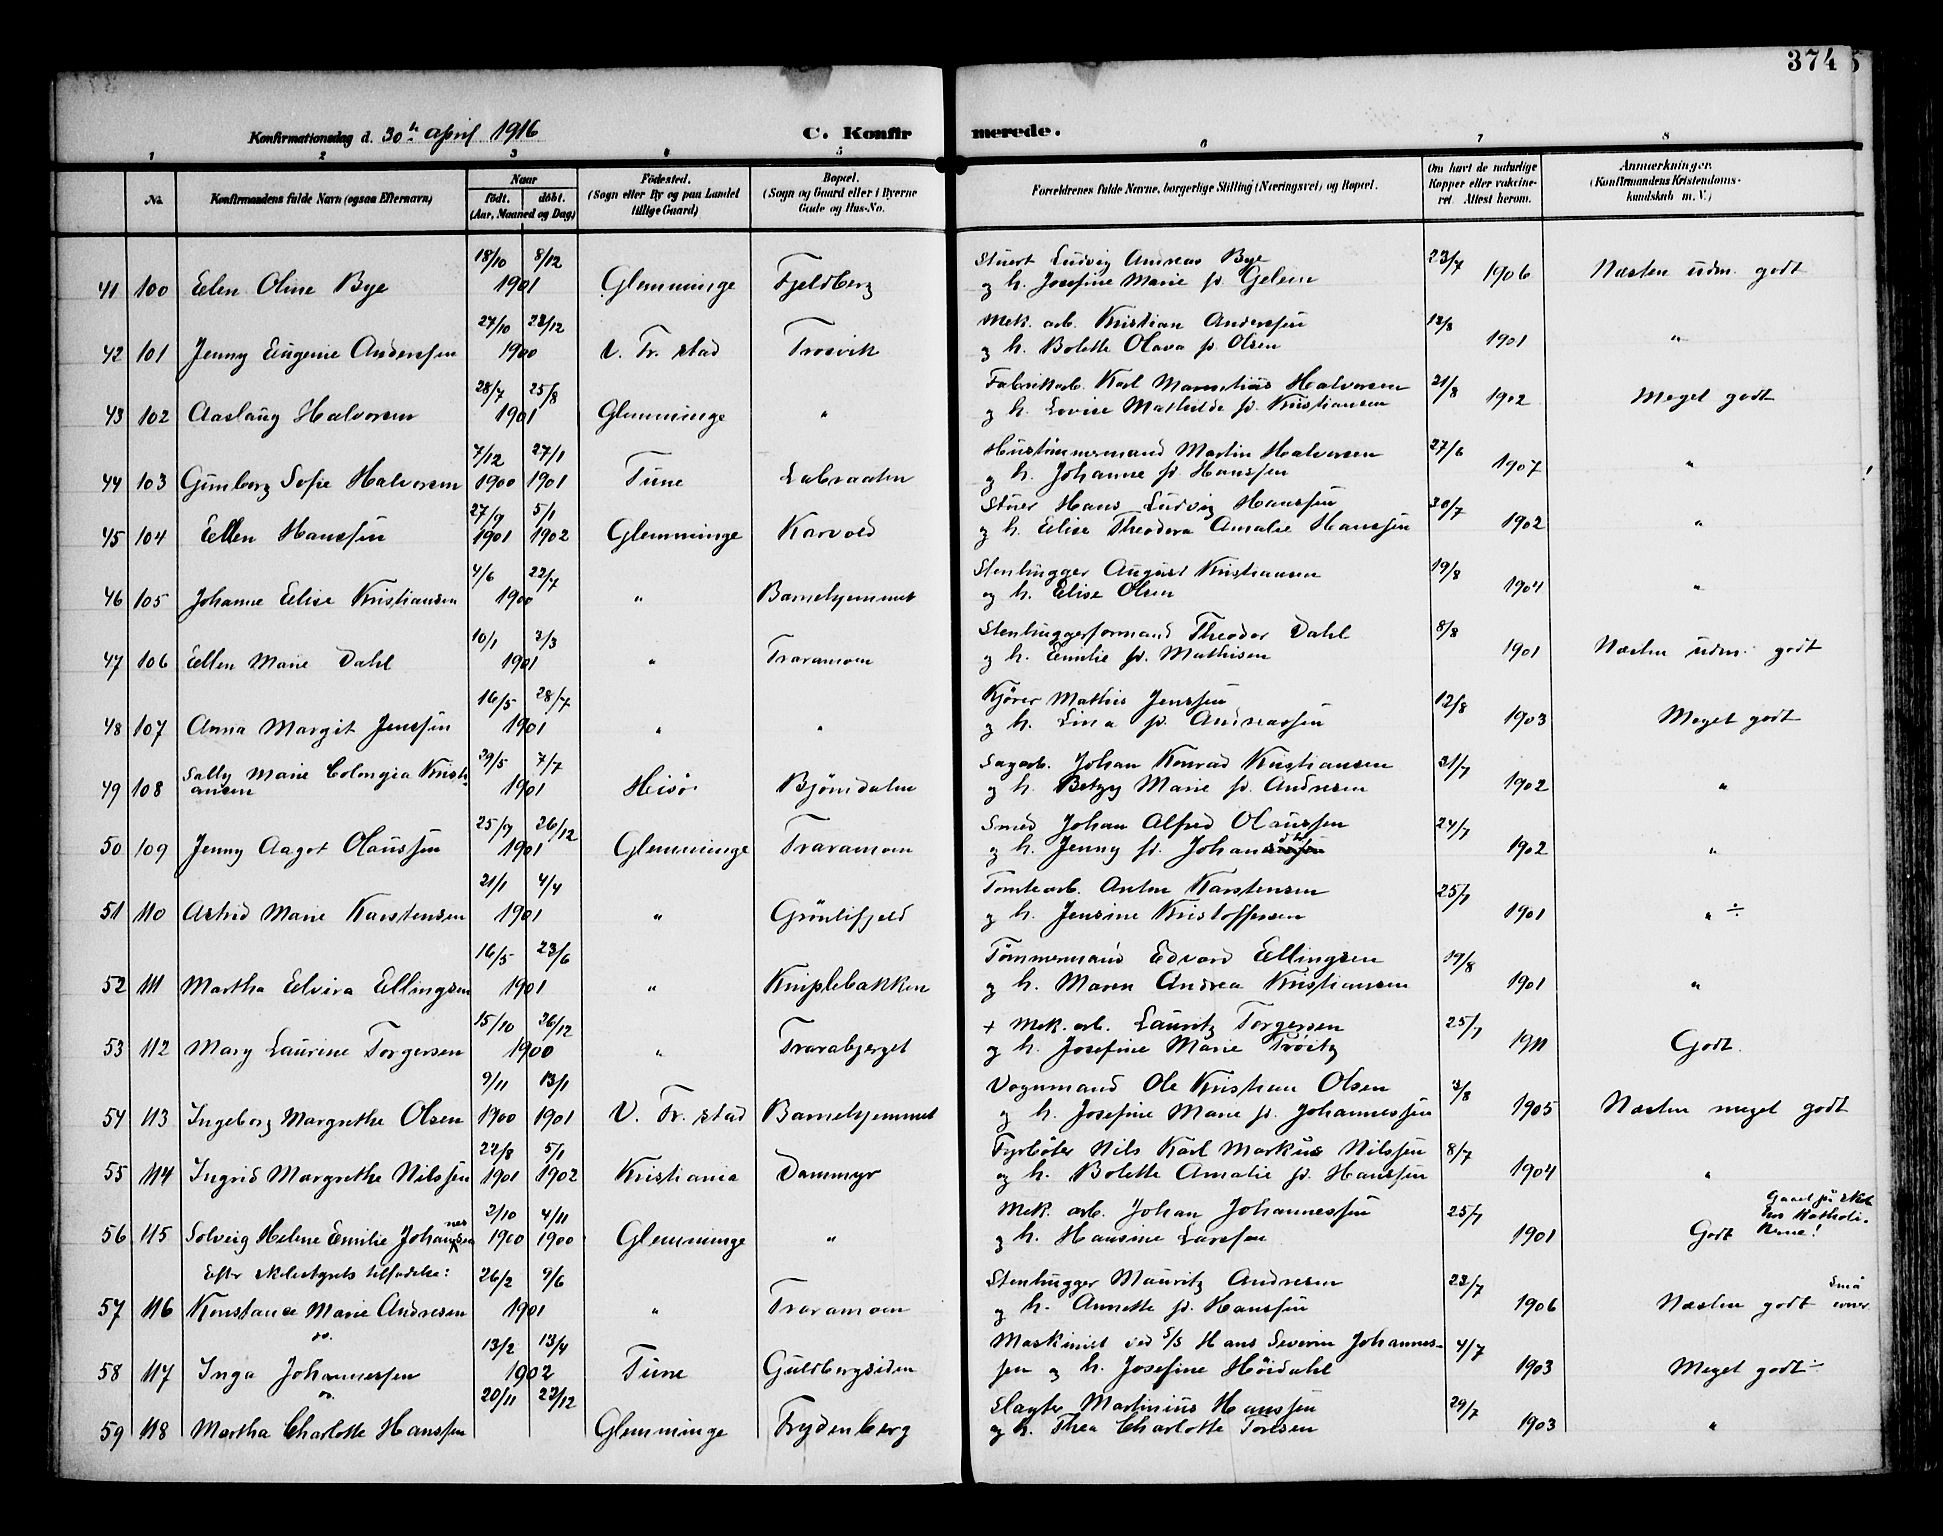 374
Konfirmationsdag d. 30te april 1916
C. Konfir merede.
1 2 3 4 5 6 7 8
No.
Konfirmandens fulde Navn (ogsaa Efternavn)
Naar
født. døbt.
(Aar, Maaned og Dag)
Fødested.
(Sogn eller By og paa Landet
tillige Gaard)
Bopæl.
(Sogn og Gaard eller i Byerne
Gade og Hus-No.
Forældrenes fulde Navne, borgerlige Stilling (Næringsvei) og Bopæl.
Om havt de naturlige
Kopper eller vakcine-
ret. Attest herom.
Anmærkninger.
(Konfirmandens Kristendoms-
kundskab m. V.)
18/10 8/12 Stuert Ludvig Andreas Bye 23/7
41 100 Elen Oline Bye 1901 Glemminge Fjeldberg og h. Josefine Marie f. 1906 Næsten udm. godt
27/10 23/12 Mek. arb. Kristian Anderssen 13/8
42 101 Jenny Eugenie Anderssen 1900 V. Fr. stad Trosvik og h. Bolette Olava f. Olsen 1901 "
28/7 25/8 Fabrikarb. Karl Halvorsen 21/8
43 102 Aaslaug Halvorsen 1901 Glemminge " og h. Lovise Mathilde f. Kristiansen 1902 Meget godt
7/12 27/1 Hustömmermand Martin Halvorsen 27/6
44 103 Gunborg Sofie Halvorsen 1900 1901 Tune Labraaten og h. Johanne f. Hanssen 1907 "
27/9 5/1 Stuer Hans Ludvig Hanssen 30/7
45 104 Ellen Hanssen 1901 1902 Glemminge Karvold og h. Elise Theodora Amalie Hanssen 1902 "
4/6 22/7 Stenhugger August Kristiansen 19/8
46 105 Johanne Elise Kristiansen 1900 " Barnehjemmet og h. Elise Olsen 1904 "
10/1 3/3 Stenhuggerformand Theodor Dahl 8/8
47 106 Ellen Marie Dahl 1901 " Traramoen og h. Emilie f. Mathisen 1901 Næsten udm. godt
16/5 28/7 Kjörer Mathis Jenssen 12/8
48 107 Anna Margit Jenssen 1901 " " og h. Lina f. Andreassen 1903 Meget godt
Sally Marie Colongia Kristi- 29/5 7/7 Sagarb. Johan Konrad Kristiansen 31/7
49 108 ansen 1901 Heisö Björndalen og h. Betzy Marie f. Andresen 1902 "
25/9 26/12 Smed Johan Alfred Olaussen 24/7
50 109 Jenny Aagot Olaussen 1901 Glemminge Traramoen og h. Jenny f. 1902 "
21/1 4/4 Tomtearb. Anton Karstensen 25/7
51 110 Astrid Marie Karstensen 1901 " Grönlifjeld og h. Jensine Kristoffersen 1901 " ÷
16/5 23/6 Tömmermand Edvard Ellingsen 19/8
52 111 Martha Elvira Ellingsen 1901 " Kniplebakken og h. Maren Andrea Kristiansen 1901 "
15/10 26/12 + Mek. arb. Lauritz Torgersen 25/7
53 112 Mary Laurine Torgersen 1900 " Trarabjerget og h. Josefine Marie Tröitz 1911 Godt.
9/11 13/1 Vognmand Ole Kristian Olsen 3/8
54 113 Ingeborg Margrethe Olsen 1900 1901 V. Fr. stad Barnehjemmet og h. Josefine Marie f. Johannessen 1905 Næsten meget godt
22/8 5/1 Fyrböter Nils Karl Markus Nilssen 8/7
55 114 Ingrid Margrethe Nilssen 1901 1902 Kristiania Dammyr og h. Bolette Amalie f. Hanssen 1904 "
2/10 4/11 Mek. arb. Johan Johannessen 25/7 Gaaet på skole hos Katholi-
56 115 Solveig Helene Emilie Johannessen 1900 1900 Glemminge " og h. Hansine Larssen 1901 Godt kerne!
Efter skolestyrets tilladelse: 26/2 9/6 Stenhugger Mauritz Andresen 23/7 små
57 116 Konstance Marie Andresen 1901 " Traramoen og h. Annette f. Hanssen 1906 Næsten godt evner
do. 13/2 13/4 Maskinist ved S/S Hans Severin Johannes- 4/7
58 117 Inga Johannessen 1902 Tune Guldbergsiden sen og h. Josefine Höidahl 1903 Meget godt ÷
do. 20/11 23/12 Slagter Martinius Hanssen 29/7
59 118 Martha Charlotte Hanssen Glemminge Frydenberg og h. Thea Charlotte Toresen 1903 "